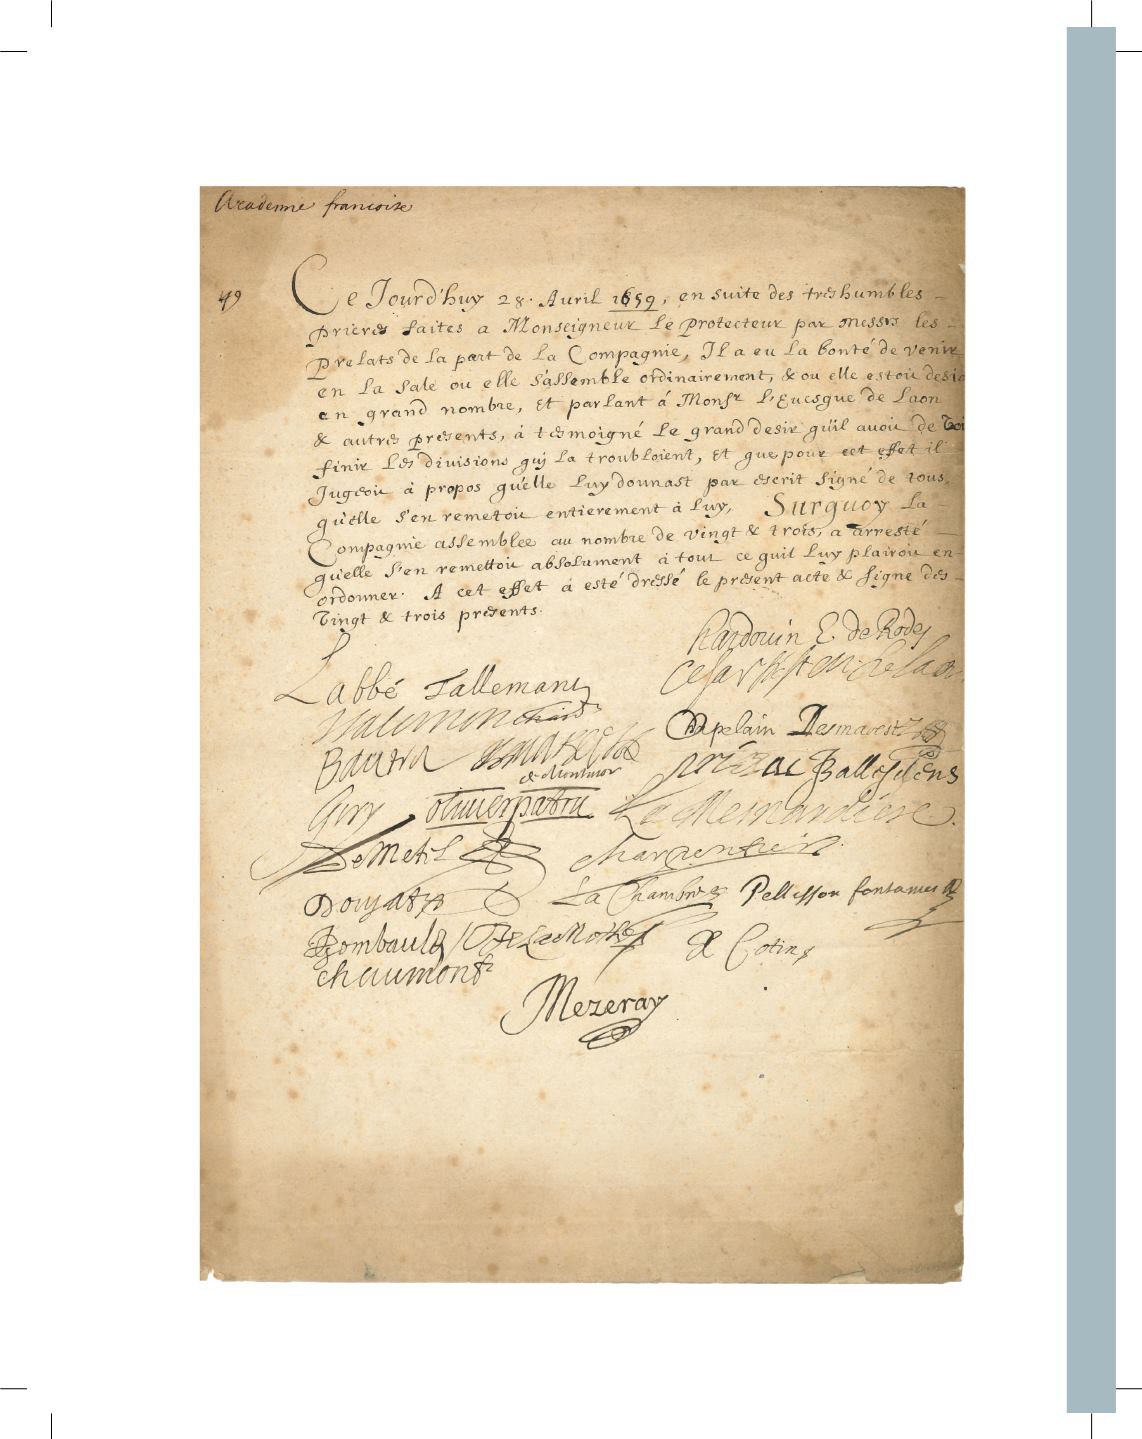 Academie francoise
49
Ce Jourd'huy 28. Auril 1659, en suite des tres humbles
prieres faites a Monseigneur Le Protecteur par Messrs les
Prelats de la part de la Compagnie, Il a eu la bonté de venir
en La Sale ou elle s'assemble ordinairement, & ou elle estoit desia
en grand nombre, et parlant á Monsr l'Euesque de Laon
& autres presents, à tesmoigné Le grand desir qu'il auoit de voir
finir Les divisions qui La troubloient, et que pour cet effet il
Jugeoit à propos qu'elle Luy donnast par escrit signé de tous,
qu'elle s'en remetoit entierement à Luy, Surquoy La
Compagnie assemblee au nombre de vingt & trois, a arresté
qu'elle s'en remettoit absolument à tout ce quil Luy plairoit en
ordonner. A cet effet à esté dressé le present acte & signe des
vingt & trois presents.
Hardouin E. de Rodez
Labbé Tallemant
Chapelain Desmarests
Bautru
de Montmor
Priezac Ballesdens
Giry oliuier patru La Mesnardiere.
Charpentier
Doujat La Chambre Pellisson fontanier
De La Mothe Cotin
chaumont
Mezeray